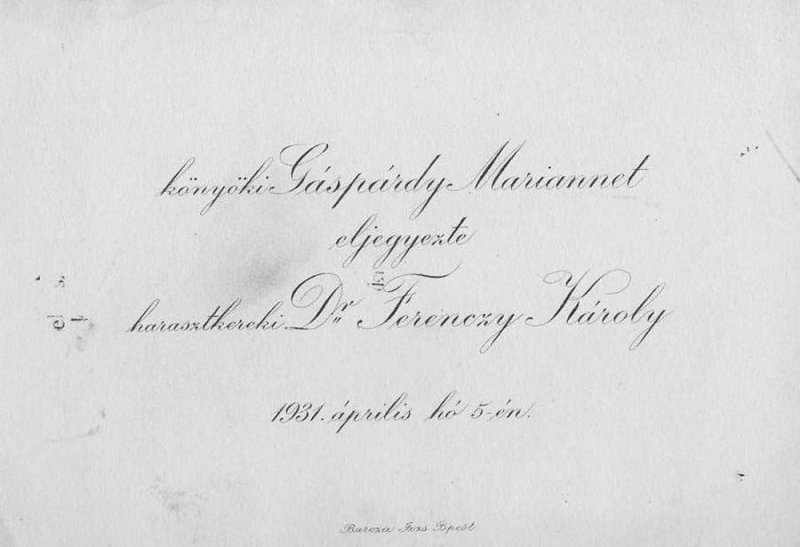 könyöki Gáspárdy Mariannet
eljegyezte
harasztkereki Dr. Ferenczy Károly
1931. április hó 5-én.
Bpest